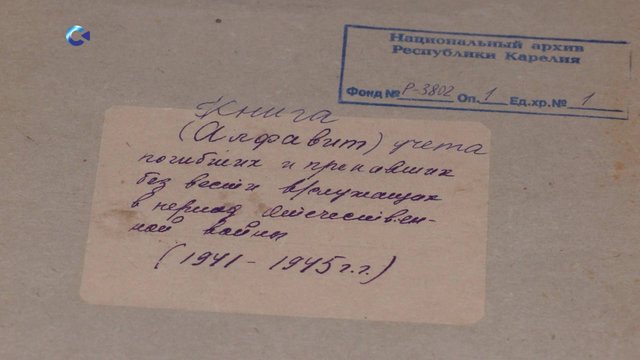 Национальный архив
Республики Карелия
Фонд № Р-3802 Оп. 1 Ед.хр.№ 1
Книга
(Алфавит) учета
погибших и пропавших
без вести в/служащих
в период Отечествен-
ной войны
(1941-1945 г.г.)